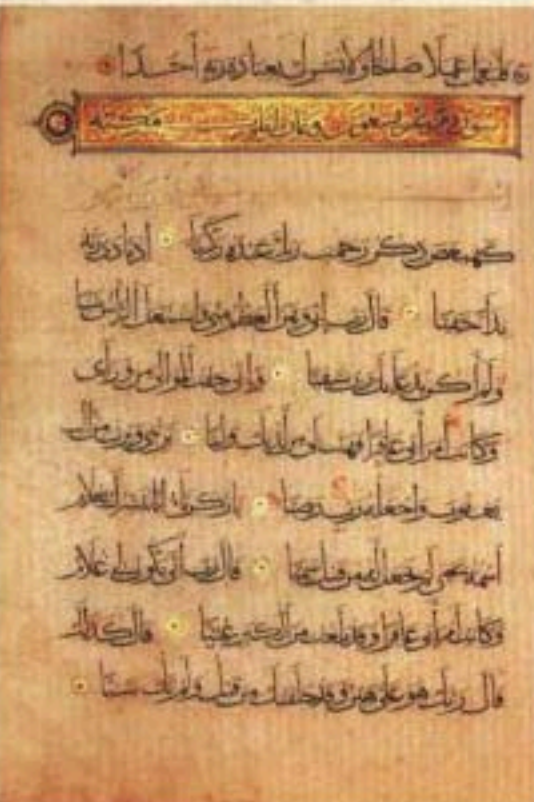 فليعمل عملا صالحا ولا يشرك بعبادة ربه احدا
سورة مريم تسعون وثمان ايات مكية
كهيعص ذكر رحمت ربك عبده زكريا اذ نادى ربه
نداء خفيا قال رب اني وهن العظم مني واشتعل الراس شيبا
ولم اكن بدعائك رب شقيا واني خفت الموالي من وراءى
وكانت امراتي عاقرا فهب لي من لدنك وليا يرثني ويرث من ال
يعقوب واجعله رب رضيا يا زكريا انا نبشرك بغلام
اسمه يحيى لم نجعل له من قبل سميا قال رب انى يكون لي غلام
وكانت امراتي عاقرا وقد بلغت من الكبر عتيا قال كذلك
قال ربك هو علي هين وقد خلقتك من قبل ولم تك شيئا